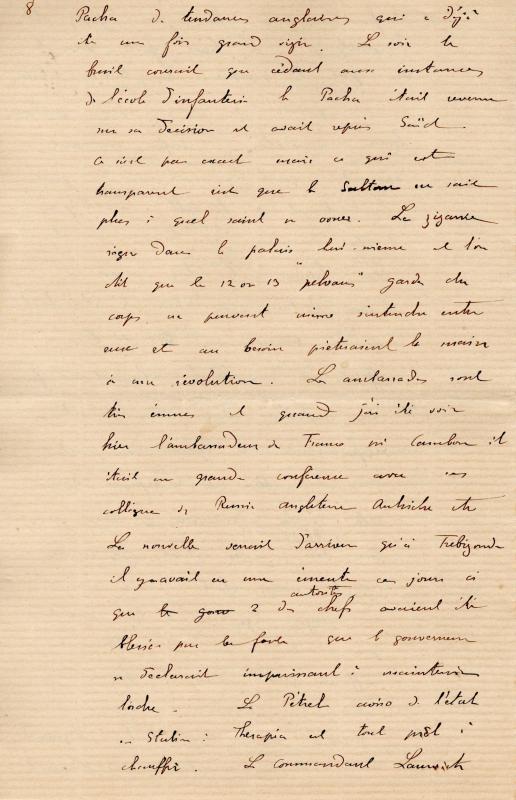 8
Pacha de tendances anglaises qui a déjà
été une fois grand vizir. Le soir le
bruit courait que cédant aux instances
de l'école d'infanterie le Pacha était revenu
sur sa décision et avait repris Saïd
Ce n'est pas exact mais ce qui est
transparent c'est que le Sultan ne sait
plus à quel saint se vouer. La zizanie
règne dans le palais lui-même et l'on
dit que les 12 ou 13 "pelvans" garde du
corps ne peuvent même s'entendre entre
eux et au besoin prêteraient la main
à une révolution. Les ambassades sont
très émues et quand j'ai été voir
hier l'ambassadeur de France mr Cambon il
était en grande conférence avec ses
collègues de Russie Angleterre Autriche etc
La nouvelle venait d'arriver qu'à Trébizonde
il y avait eu une émeute ces jours ci
autorités
que 2 des chefs avaient été
blessés par la foule que le gouverneur
se déclarait impuissant à maintenir
l'ordre. Le Pétrel aviso de l'état
en station à Thérapia est tout prêt à
chauffer. Le commandant